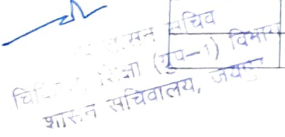 शासन सचिव
शिक्षा (ग्रुप-1) विभाग
शासन सचिवालय,